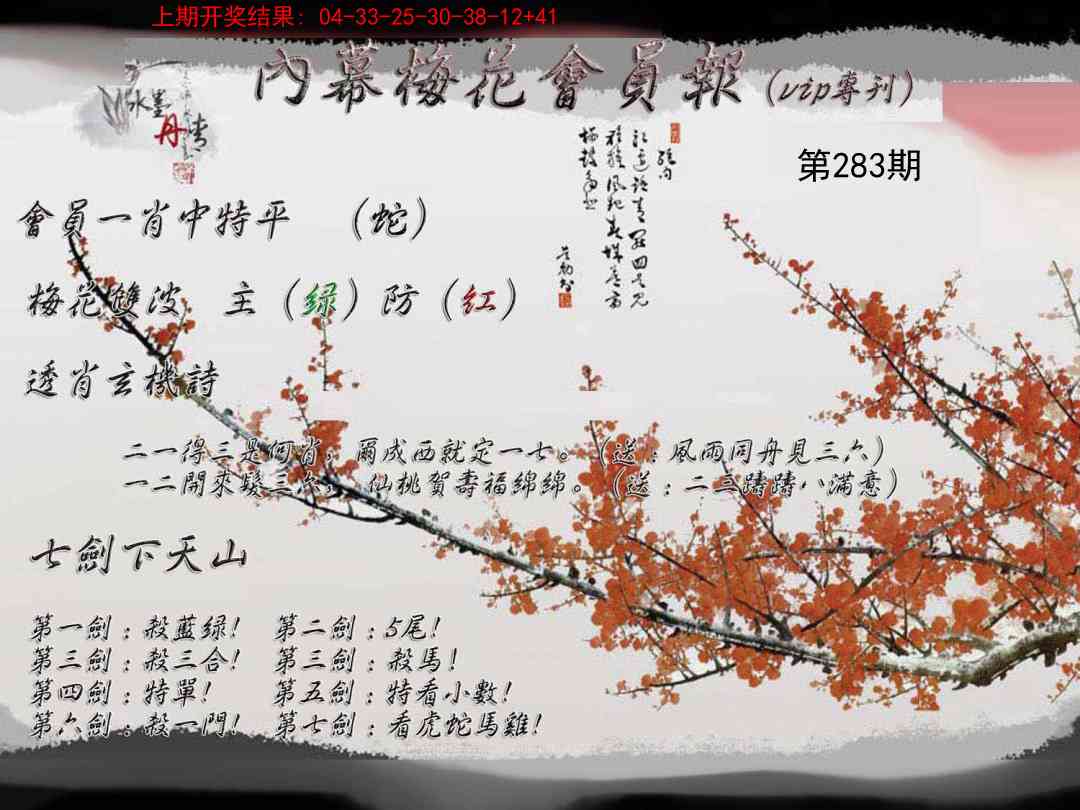 上期开奖结果: 04-33-25-30-38-12+41
內幕梅花會員報(vip專刊)
水墨丹青
第283期
會員一肖中特平 （蛇）
梅花雙波 主（绿）防（红）
透肖玄機詩
二一得三是何肖，爾成西就定一七。（送：風雨同舟見三六）
一二開來髮三六，仙桃賀壽福綿綿。（送：二三躊躊八滿意）
七劍下天山
第一劍：殺藍绿！ 第二劍：5尾！
第三劍：殺三合！ 第三劍：殺馬！
第四劍：特單！ 第五劍：特看小數！
第六劍：殺一門！ 第七劍：看虎蛇馬雞！